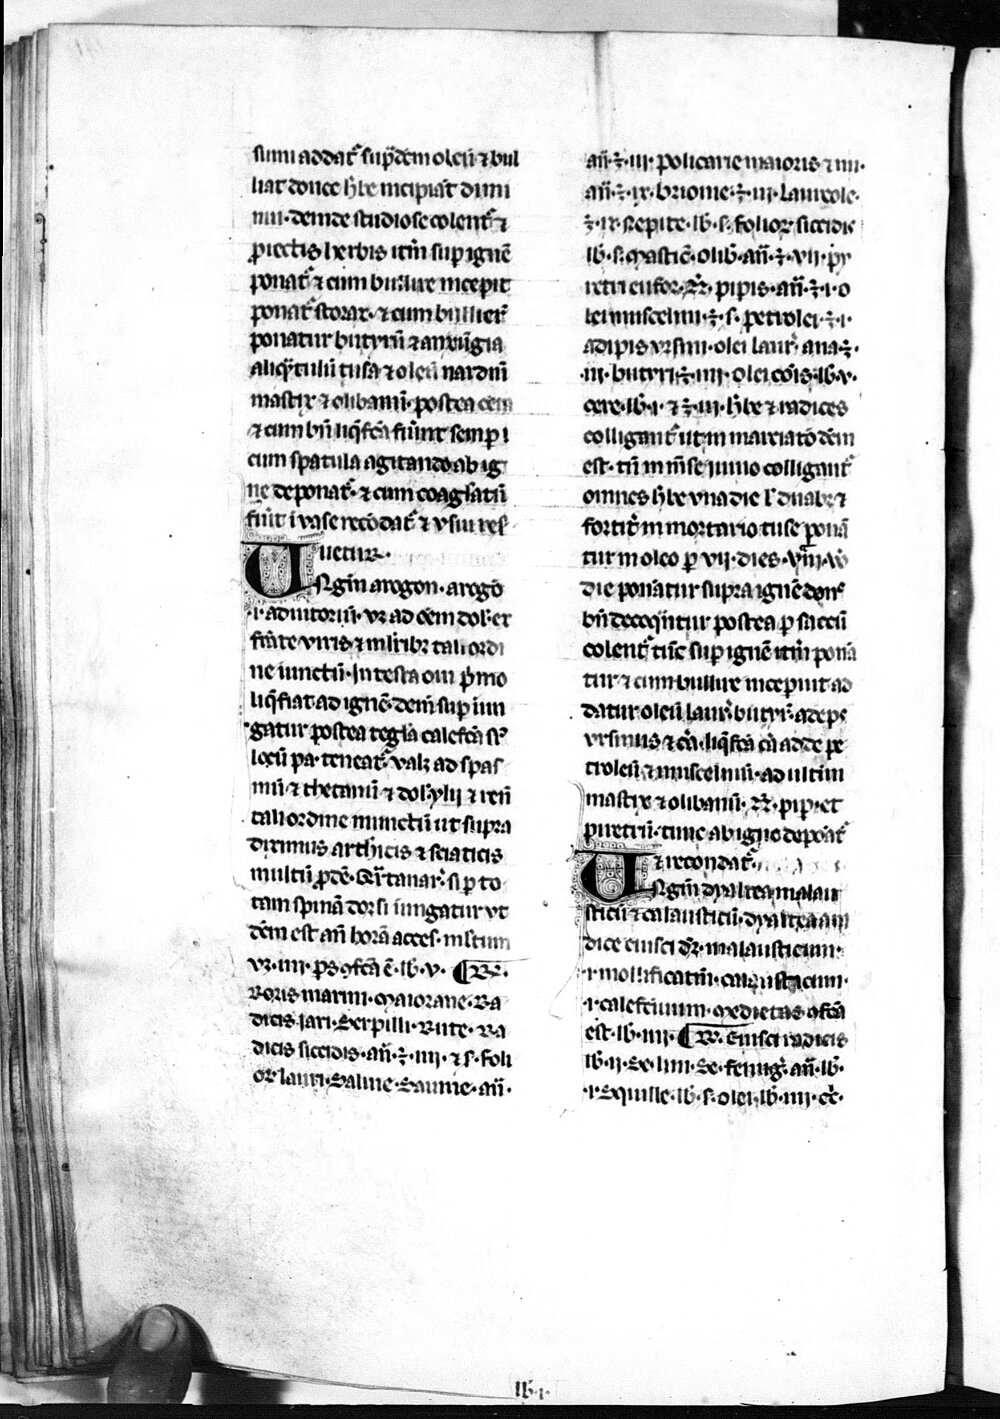 sumi addat᷑ sup̱dc̄m oleū ⁊ bul
liat donec h̓be incipiāt dimi
nui· deinde studiose colent᷑ ⁊
ꝓiectis herbis itm̄ sup ignē
ponat᷑ ⁊ cum bullire incepit
ponat᷑ storax· ⁊ cum bullier̄
ponatur butyrū ⁊ anxūgia
aliq̄tulū tusa ⁊ oleū nardinū
mastix ⁊ olibanū· postea cera
⁊ cum bn̄ liq̄fc̄a fiūnt semꝑ i
cum spatula agitando ab ig
ne deponat᷑· ⁊ cum coagl̓atū
fu̓it i vase recōdat᷑ ⁊ vsui res̓
uetur·
Ungm̄ aregon· aregō
·i· adiutoriū· vꝫ ad oēm dol̓· ex
fri̓tate viris ⁊ ml̓ribꝫ tali ordi
ne iunctū· In testa oui p̓mo
liq̄fiat ad ignē· dein̄ sup inn
gatur postea tegl̓a calefc̄a sr̓
locū pa· teneat᷑· valꝫ ad spas
mū ⁊ thetanū ⁊ dol̓ ylij ⁊ renū
tali ordine inunctū ut supra
diximus artheticis ⁊ sciaticis
multū ꝓdē· Qr̄tanar̓· si ꝑ to
tam spinā dorsi iungatur vt
dc̄m est an̄ horā acces· instrum
vꝫ· iiij· ps̄ ꝯfc̄a ē· lb· v· ¶ ℞·
Roris marini· maiorane· Ra
dicis iari· Serpilli· Rute· Ra
dicis siccidis· an̄· ℥· iiij· ⁊ s̓· foli
oꝝ lauri· Saluie· Sauine· an̄·
an̄· ℥· iij· policarie maioris ⁊ mi·
an̄· ℥· ix· brionie· ℥· iij· laureole·
℥· ix· nepite· lb· s̓· folioꝝ siccidis
lb· s̓· mastic̄· olib̄· an̄· ℥· vij· py
retri eufor· zz̓· pipis· an̄· ℥· i· o
lei muscelini· ℥· s̓· petrolei· ℥· i·
adipis vrsini· olei laur̓· ana· ℥·
iij· butyri· ℥· iiij· olei cōis· lb· v·
cere· lb· i· ⁊ ℥· iij· h̓be ⁊ radices
colligant᷑ ut in marciatō dc̄m
est· tn̄ in mēse iunio colligant᷑
omnes h̓be vna die l̓ duabꝫ ⁊
fortit̓ in mortario tuse ponā
tur in oleo ꝑ vij· dies· viij· vo̓
die ponātur supra ignē donˢ
bn̄ decoq̄ntur postea ꝑ saccū
colent᷑ tūc sup ignē itm̄ ponā
tur ⁊ cum bullire inceperint ad
datur oleū laur̓· butyr̓· adeps
vrsinus ⁊ cā· liq̄fc̄a cā adde pe
troleū ⁊ muscelinū· ad ultimū
mastix ⁊ olibanū· zz̓· pip· et
piretrū· tunc ab igne depōat᷑
⁊ recondat᷑·
Ungm̄ dyaltea malau
sticū ⁊ calausticū· dyaltea a ra
dice euisci dr̄· malausticum·
·i· mollificatiū· calausticum·
·i· calefc̄iuum· medietas ꝯfc̄a
est· lb· iiij· ¶ ℞· Euisci radicis
lb· ij· Se· lini· Se· fenug̓· an̄· lb·
·i· Squille· lb· s̓· olei· lb· iiij· ce̓·
lb· i·